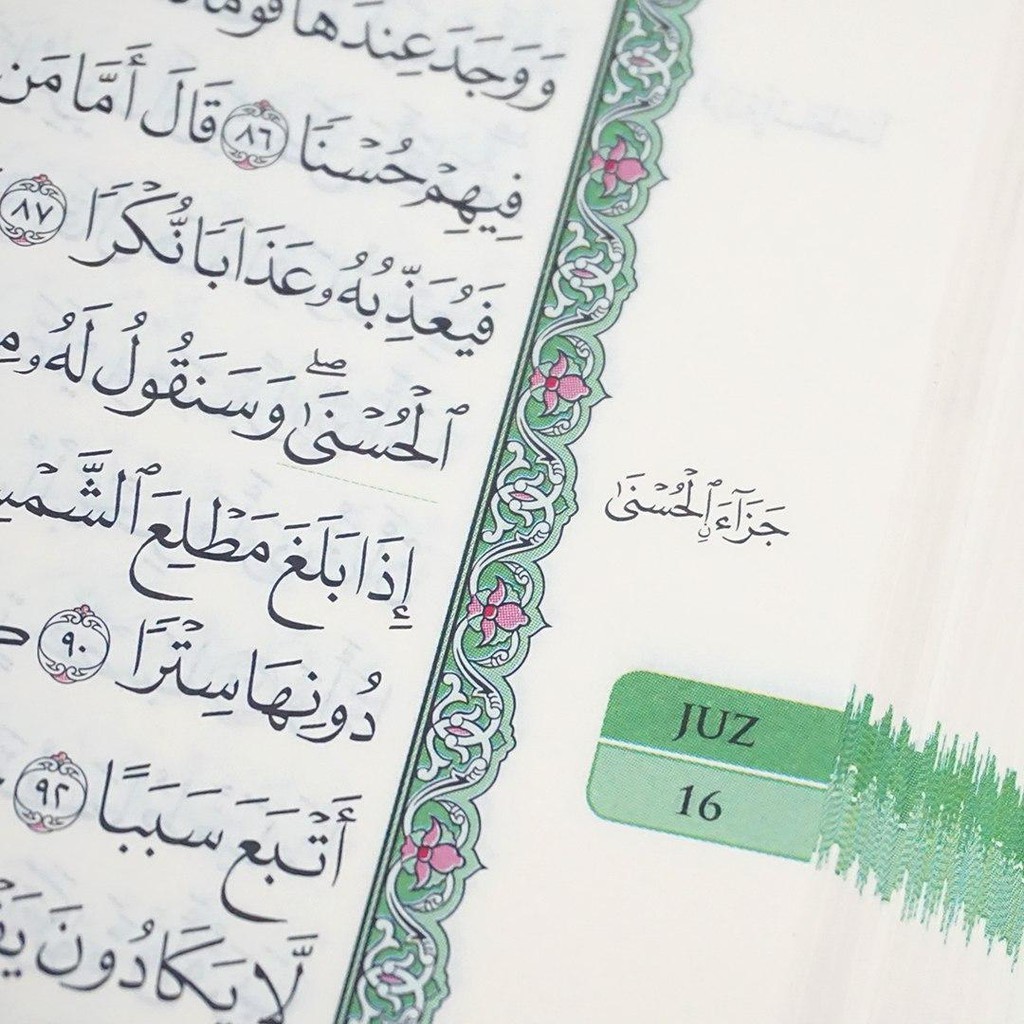 وَوَجَدَ عِندَهَا قَوْمًا
فِيهِمْ حُسْنًا ٨٦ قَالَ أَمَّا مَن
فَيُعَذِّبُهُۥ عَذَابًا نُّكْرًا ٨٧
ٱلْحُسْنَىٰ ۖ وَسَنَقُولُ لَهُۥ مِ
إِذَا بَلَغَ مَطْلِعَ ٱلشَّمْسِ
دُونِهَا سِتْرًا ٩٠ كَ
أَتْبَعَ سَبَبًا ٩٢
لَّا يَكَادُونَ يَفْ
جَزَآءَنِ ٱلْحُسْنَىٰ
JUZ
16